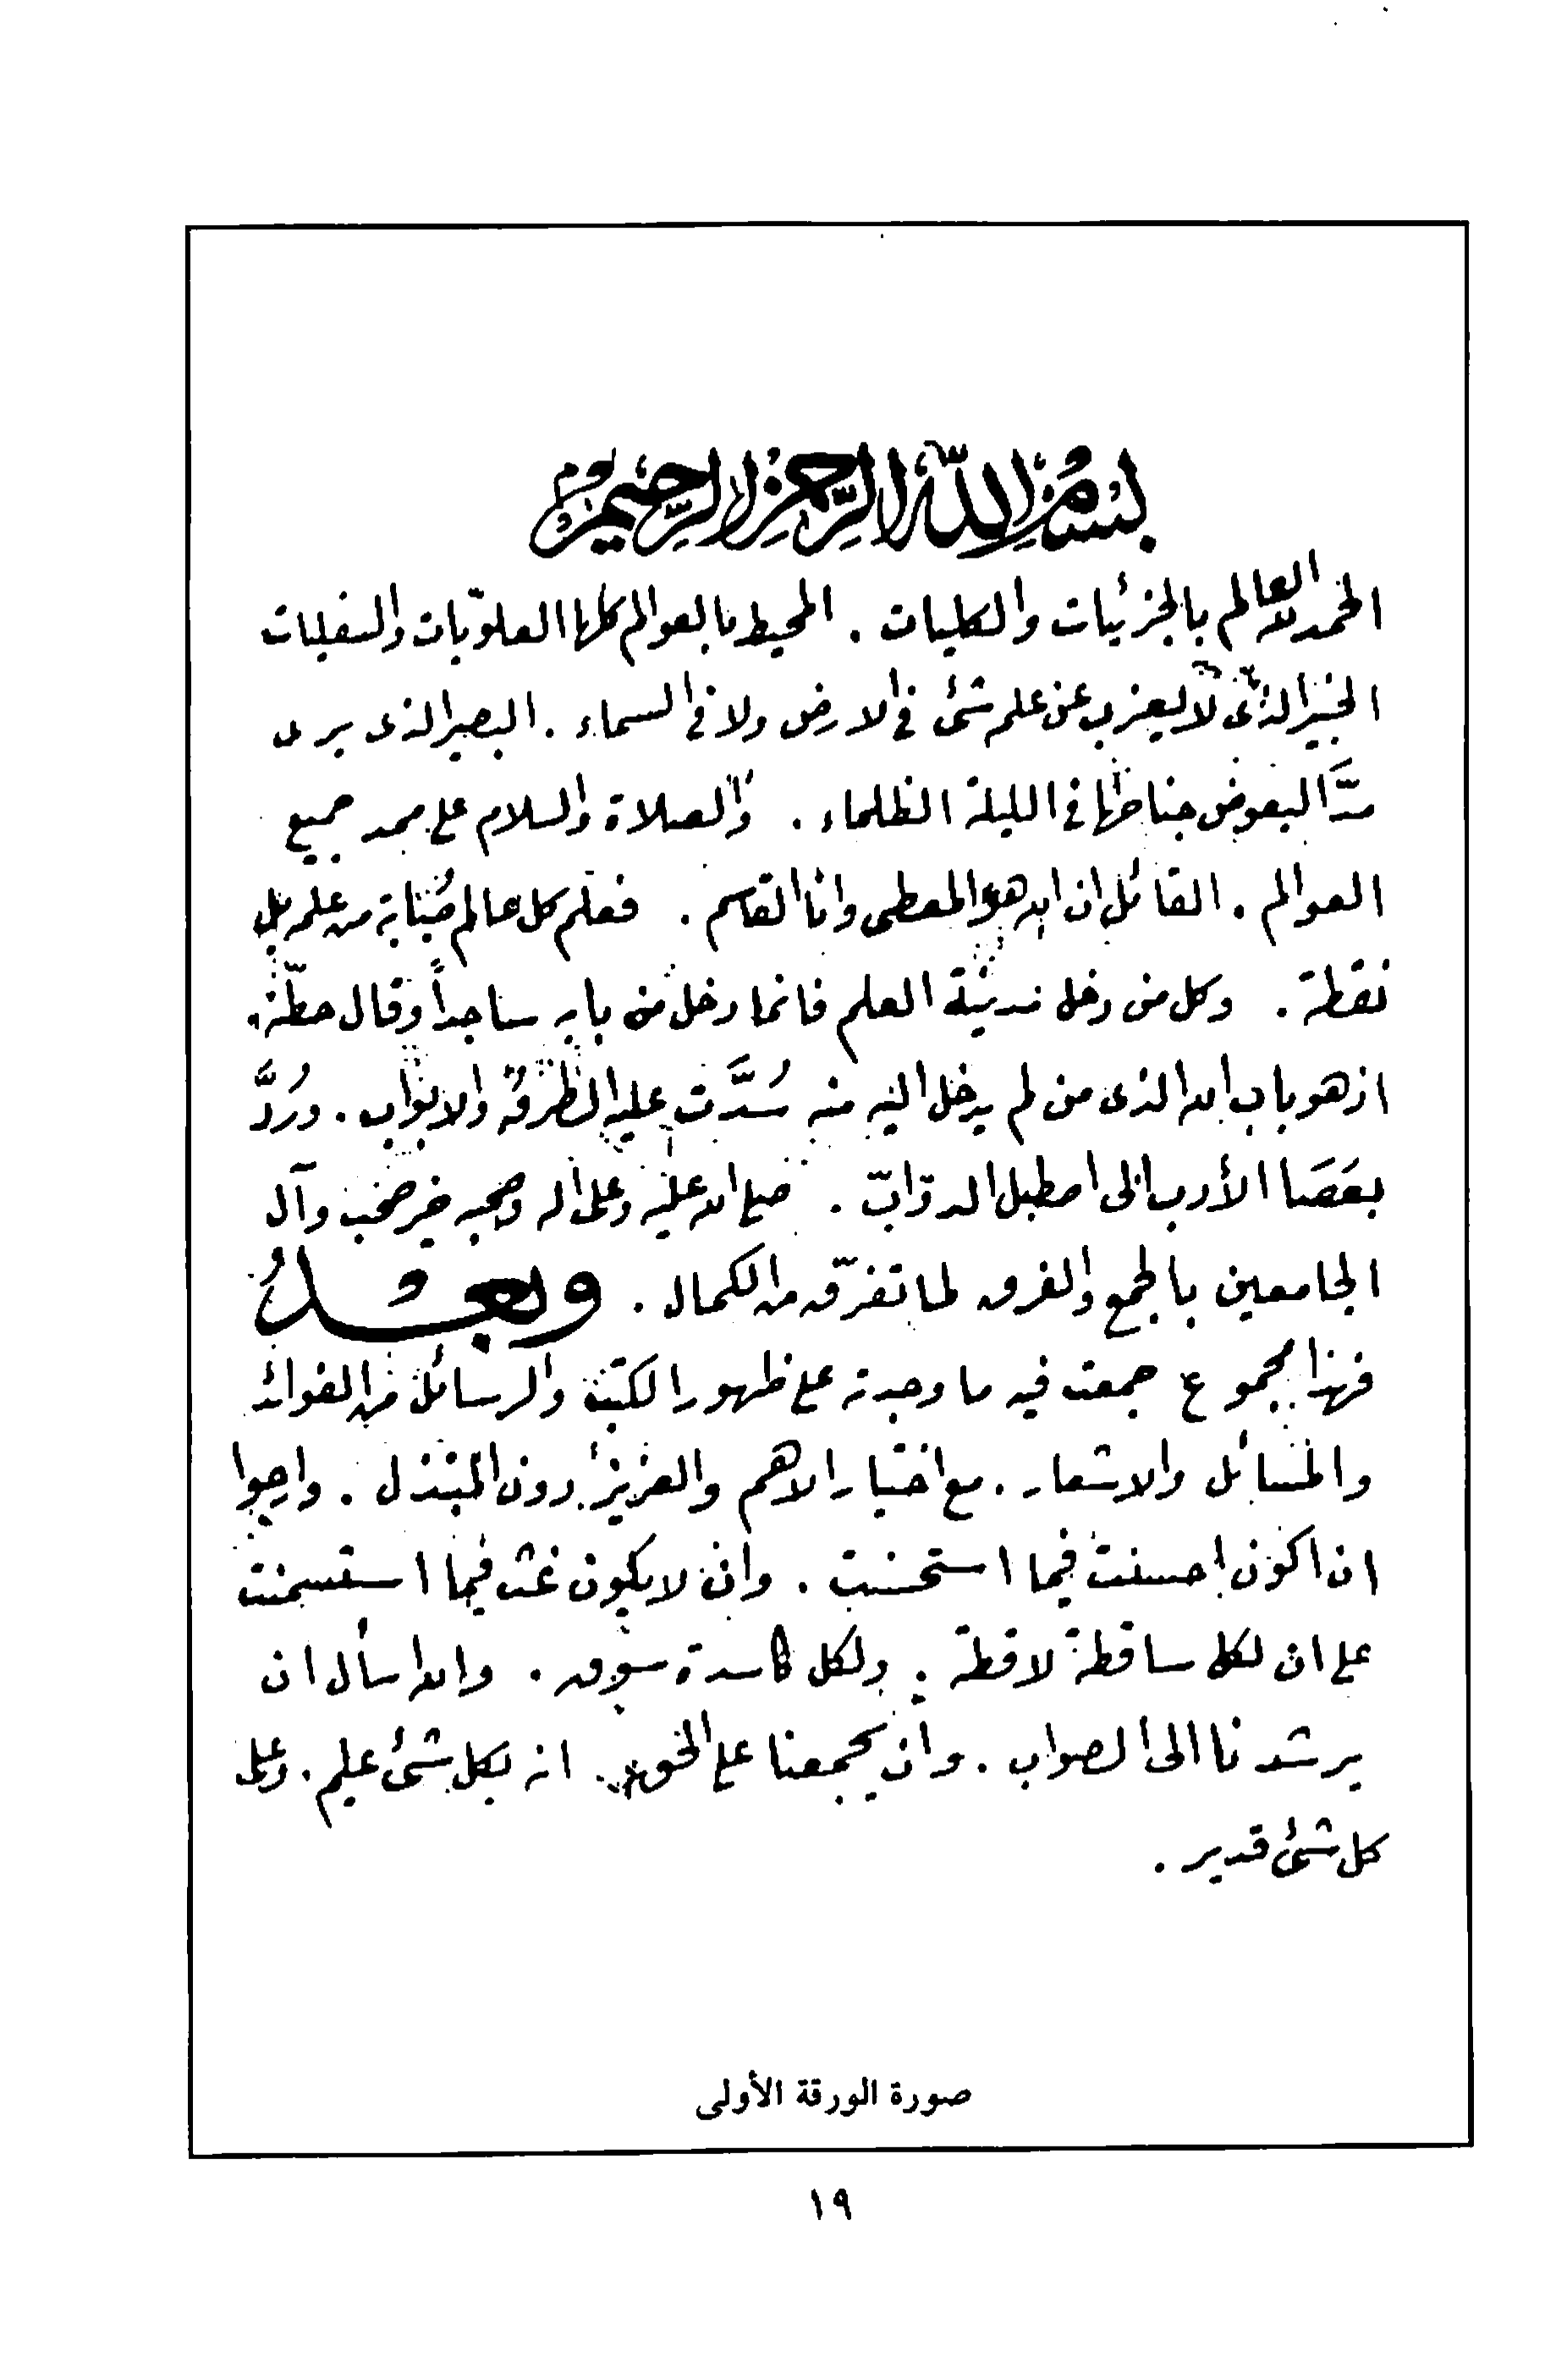 بسم الله الرحمن الرحيم
الحمد لله العالم بالجزئيات والكليات . المحيط بالعوالم كلها العلويّات والسفليات
الخبير الذى لا يعزب عن علمه شئ فى الارض ولا فى السماء . البصير الذى يرى
مدَّ البعوض جناحها فى الليلة الظلماء . والصلاة والسلام على محمد جميع
العوالم . القائل ان الله هو المعطى وانا القاسم . فعلم كل عالم صُبابة من علمه بل
نقطة . وكل من دخل مدينة العلم فانما دخل من بابه ساجداً وقال حطّة .
اذ هو باب الله الذى من لم يدخل اليه منه سُدَّت عليه الطرق والابواب . ورُدَّ
بعَصَا الأدب الى اصطبل الدوّابّ . صلى الله عليه وعلى اله وصحبه خير صحب وآل
الجامعين بالجمع والفرق لما تفرّق من الكمال . وبعدُ
فهذا مجموع جمعت فيه ما وجدته على ظهور الكتب والرسائل من الفوائد
والمسائل والاشعار . مع اختيار الاهم والعزيز دون المبتذل . وارجوا
ان اكون احسنت فيما استحسنت . وان لا يكون غث فيما استسمنت
على ان لكل ساقطة لاقطة . ولكل كاسدة سوق . والله اسأل ان
يرشدنا الى الصواب . وان يجمعنا على الحق . انه بكل شئ عليم . وعلى
كل شئ قدير .
صورة الورقة الأولى
١٩